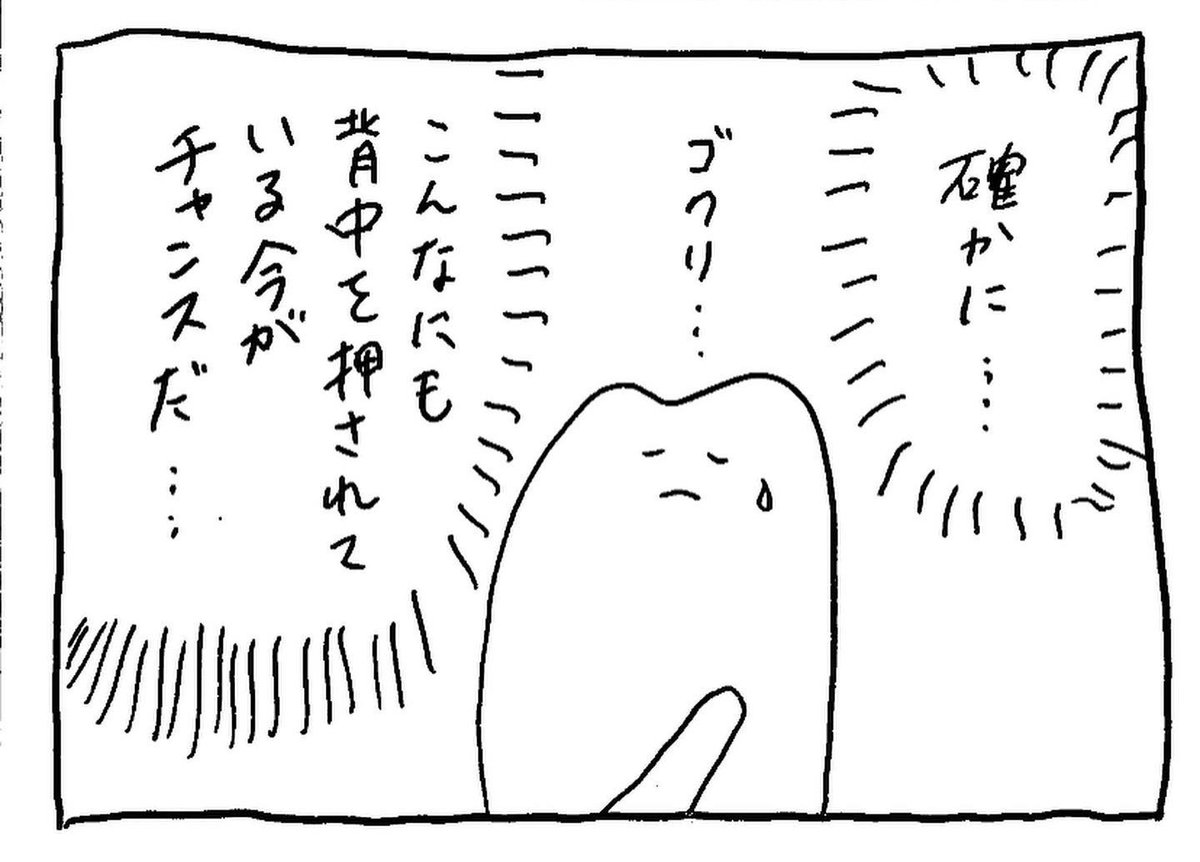 確かに……
ゴクリ…
こんなにも
背中を押されて
いる今が
チャンスだ……